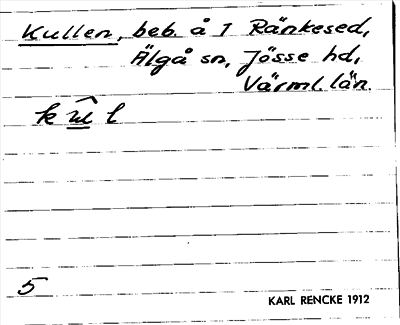 Kullen, beb. å 1 Ränkesed,
Älgå sn, Jösse hd,
Värml. län.
k l
5
KARL RENCKE 1912